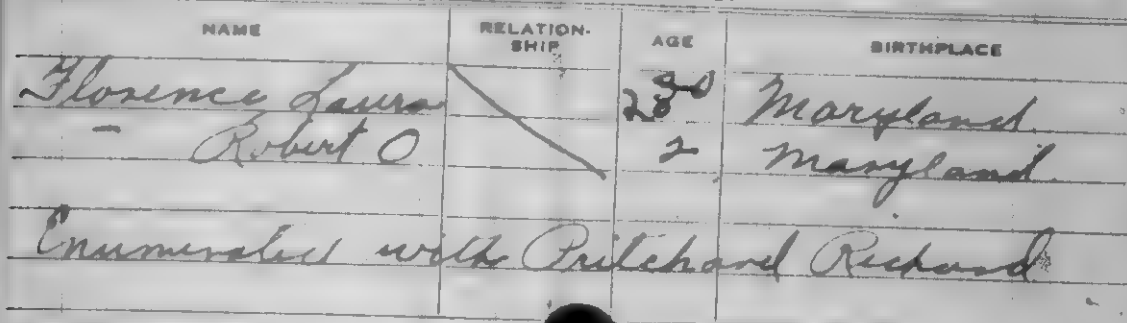 NAME RELATION-SHIP AGE BIRTHPLACE
Florence Laura Maryland
— Robert O 2 Maryland
Enumerated with Pritchard Richard